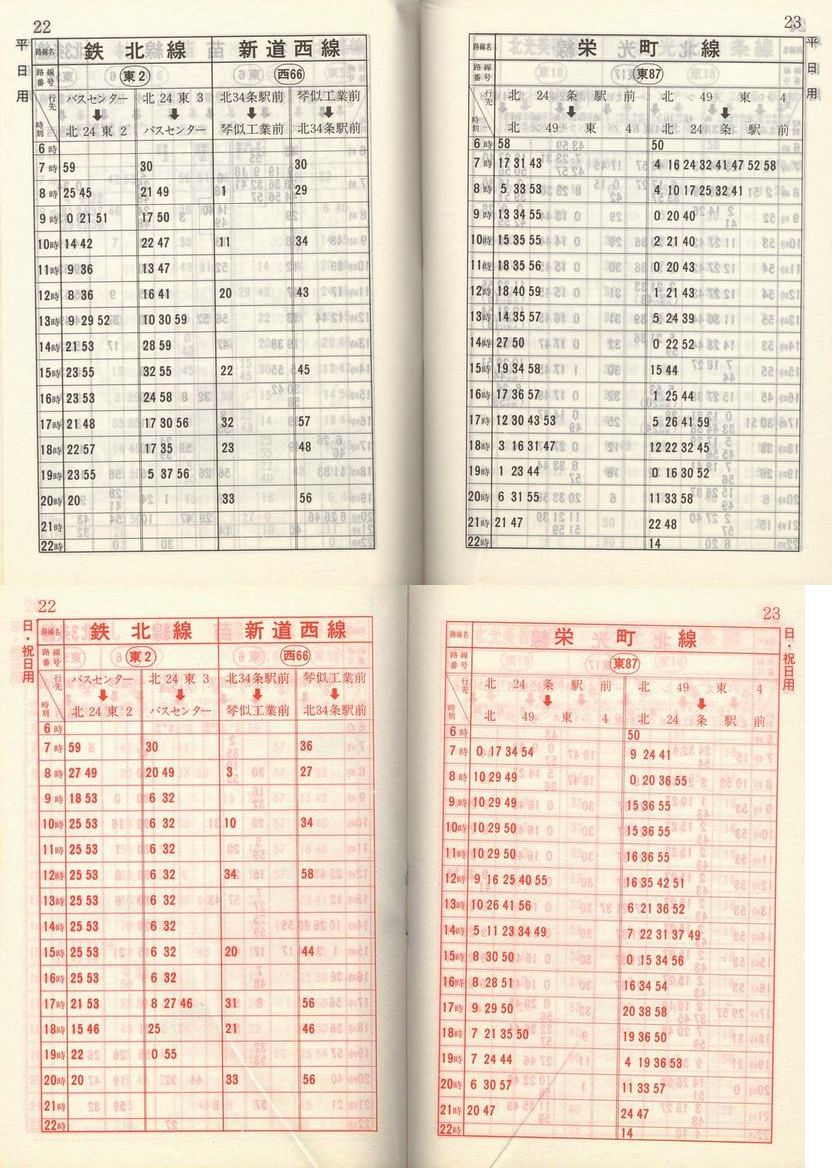 22
平日用
路線名 鉄北線 新道西線
路線番号 東2 西66
行先 時刻 バスセンター ↓ 北24東2 北24東3 ↓ バスセンター 北34条駅前 ↓ 琴似工業前 琴似工業前 ↓ 北34条駅前
6時
7時 59 30 30
8時 25 45 21 49 1 29
9時 0 21 51 17 50
10時 14 42 22 47 11 34
11時 9 36 13 47
12時 8 36 16 41 20 43
13時 9 29 52 10 30 59
14時 21 53 28 59
15時 23 55 32 55 22 45
16時 23 53 24 58
17時 21 48 17 30 56 32 57
18時 22 57 17 35 23 48
19時 23 55 5 37 56
20時 20 33 56
21時
22時
23
平日用
路線名 栄町線
路線番号 東87
行先 時刻 北24条駅前 ↓ 北49東4 北49東4 ↓ 北24条駅前
6時 58 50
7時 17 31 43 4 16 24 32 41 47 52 58
8時 5 33 53 4 10 17 25 32 41
9時 13 34 55 0 20 40
10時 15 35 55 2 21 40
11時 18 35 56 0 20 43
12時 18 40 59 1 21 43
13時 14 35 57 5 24 39
14時 27 50 0 22 52
15時 19 34 58 15 44
16時 17 36 57 1 25 44
17時 12 30 43 53 5 26 41 59
18時 3 16 31 47 12 22 32 45
19時 1 23 44 0 16 30 52
20時 6 31 55 11 33 58
21時 21 47 22 48
22時 14
22
日・祝日用
路線名 鉄北線 新道西線
路線番号 東2 西66
行先 時刻 バスセンター ↓ 北24東2 北24東3 ↓ バスセンター 北34条駅前 ↓ 琴似工業前 琴似工業前 ↓ 北34条駅前
6時
7時 59 30 36
8時 27 49 20 49 3 27
9時 18 53 6 32
10時 25 53 6 32 10 34
11時 25 53 6 32
12時 25 53 6 32 34 58
13時 25 53 6 32
14時 25 53 6 32
15時 25 53 6 32 20 44
16時 25 53 6 32
17時 21 53 8 27 46 31 56
18時 15 46 25 21 46
19時 22 0 55
20時 20 33 56
21時
22時
23
日・祝日用
路線名 栄町線
路線番号 東87
行先 時刻 北24条駅前 ↓ 北49東4 北49東4 ↓ 北24条駅前
6時 50
7時 0 17 34 54 9 24 41
8時 10 29 49 0 20 36 55
9時 10 29 49 15 36 55
10時 10 29 50 15 36 55
11時 10 29 50 16 36 55
12時 9 16 25 40 55 16 35 42 51
13時 10 26 41 56 6 21 36 52
14時 5 11 23 34 49 7 22 31 37 49
15時 8 30 50 0 15 34 56
16時 8 28 51 16 34 54
17時 9 29 50 20 38 58
18時 7 21 35 50 19 36 50
19時 7 24 44 4 19 36 53
20時 6 30 57 11 33 57
21時 20 47 24 47
22時 14